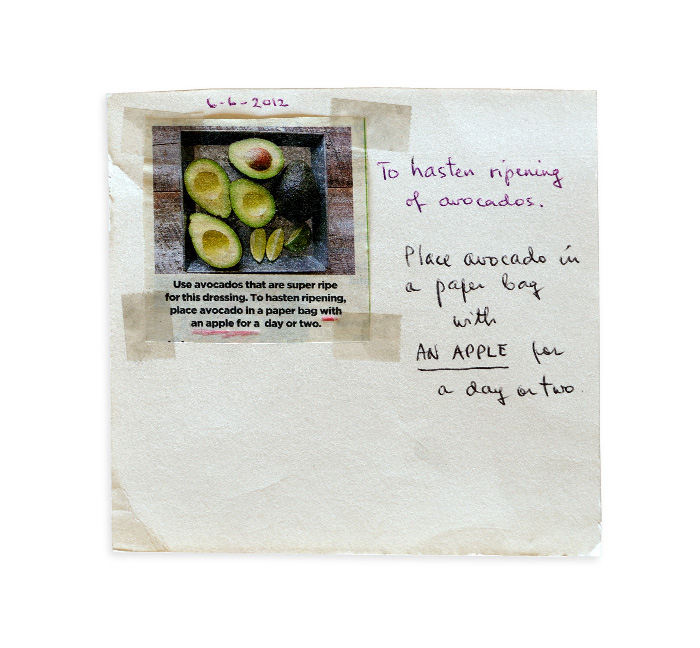 6-6-2012
Use avocados that are super ripe
for this dressing. To hasten ripening,
place avocado in a paper bag with
an apple for a day or two.
To hasten ripening
of avocados.
Place avocado in
a paper bag
with
AN APPLE for
a day or two.